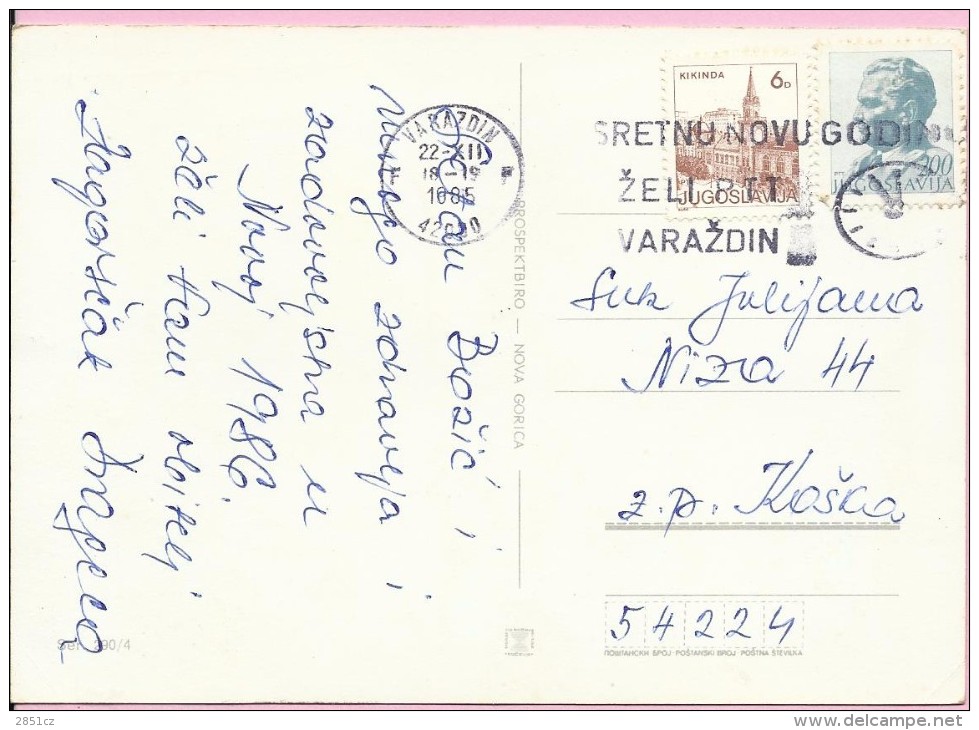 Sretan Božić i
Mnogo zdravlja i
zadovoljstva u
Novoj 1986.
želi Vam obitelj
Zagorščak Drageca
VARAŽDIN
22-XII
18-19
1985
42000
KIKINDA 6D
JUGOSLAVIJA
200
JUGOSLAVIJA
SRETNU NOVU GODIN
ŽELI PTT
VARAŽDIN
PROSPEKTBIRO — NOVA GORICA
Suk Julijana
Niza 44
z.p. Koška
54224
ПОШТАНСКИ БРОЈ · POŠTANSKI BROJ · POŠTNA ŠTEVILKA
Ser. 290/4
2851cz
www.delcampe.net